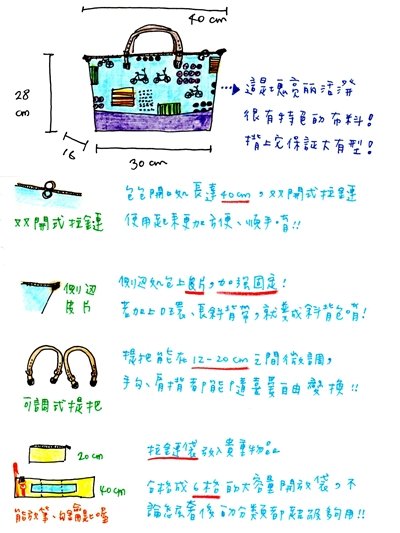 40 cm
28 cm
16
30 cm
這是塊亮丽活潑
很有特色的布料!
揹上它保証大有型!
双開式拉鏈
包包開口処長達40cm，双開式拉鏈
使用起來更加方便、順手唷!!
側边皮片
側边処包上皮片，加強固定!
若加上D環、長斜背帶，就變成斜背包唷!
可調式提把
提把能在12-20cm之間微調，
手勾、肩揹者都能隨意自由變換!!
20 cm
40 cm
能放筆、鑰匙喔
拉鏈袋放入貴重物品
分格成6格的大容量開放袋，不
論怎去看後的分類都超級夠用!!